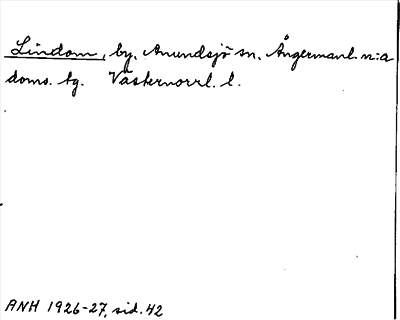 Lindom, by. Anundsjö sn. Ångermanl. n:a
doms. tg. Västernorrl. l.
ANH 1926-27, sid. 42